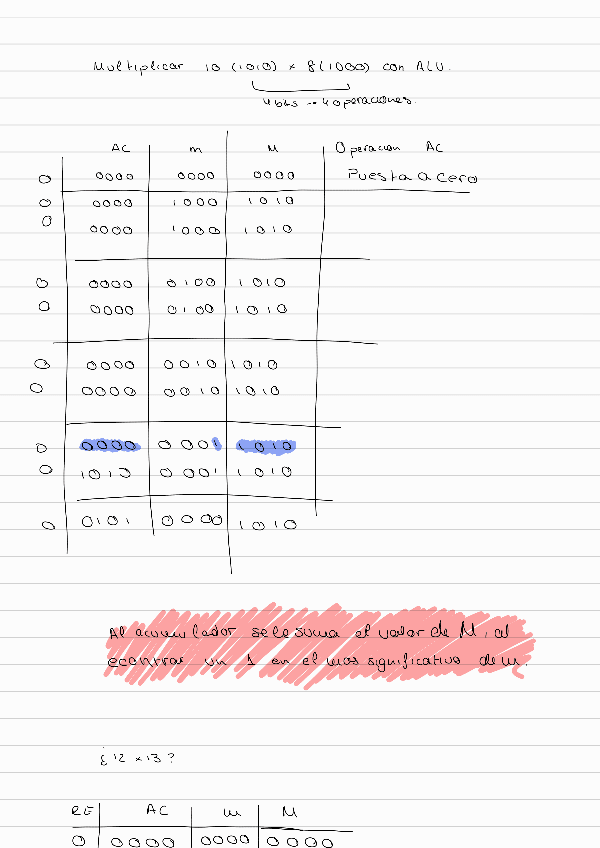 Multiplicar 10 (1010) x 8 (1000) con ALU.
4 bits -- 4 operaciones.
AC m M Operacion AC
0 0000 0000 0000 Puesta a cero
0 0000 1000 1010
0 0000 1000 1010
0 0000 0100 1010
0 0000 0100 1010
0 0000 0010 1010
0 0000 0010 1010
0 0000 0001 1010
0 1010 0001 1010
0 0101 0000 1010
Al acumulador se le suma el valor de M, al
econtrar un 1 en el mos significativo de m.
¿12 x 13?
RE AC m M
0 0000 0000 0000